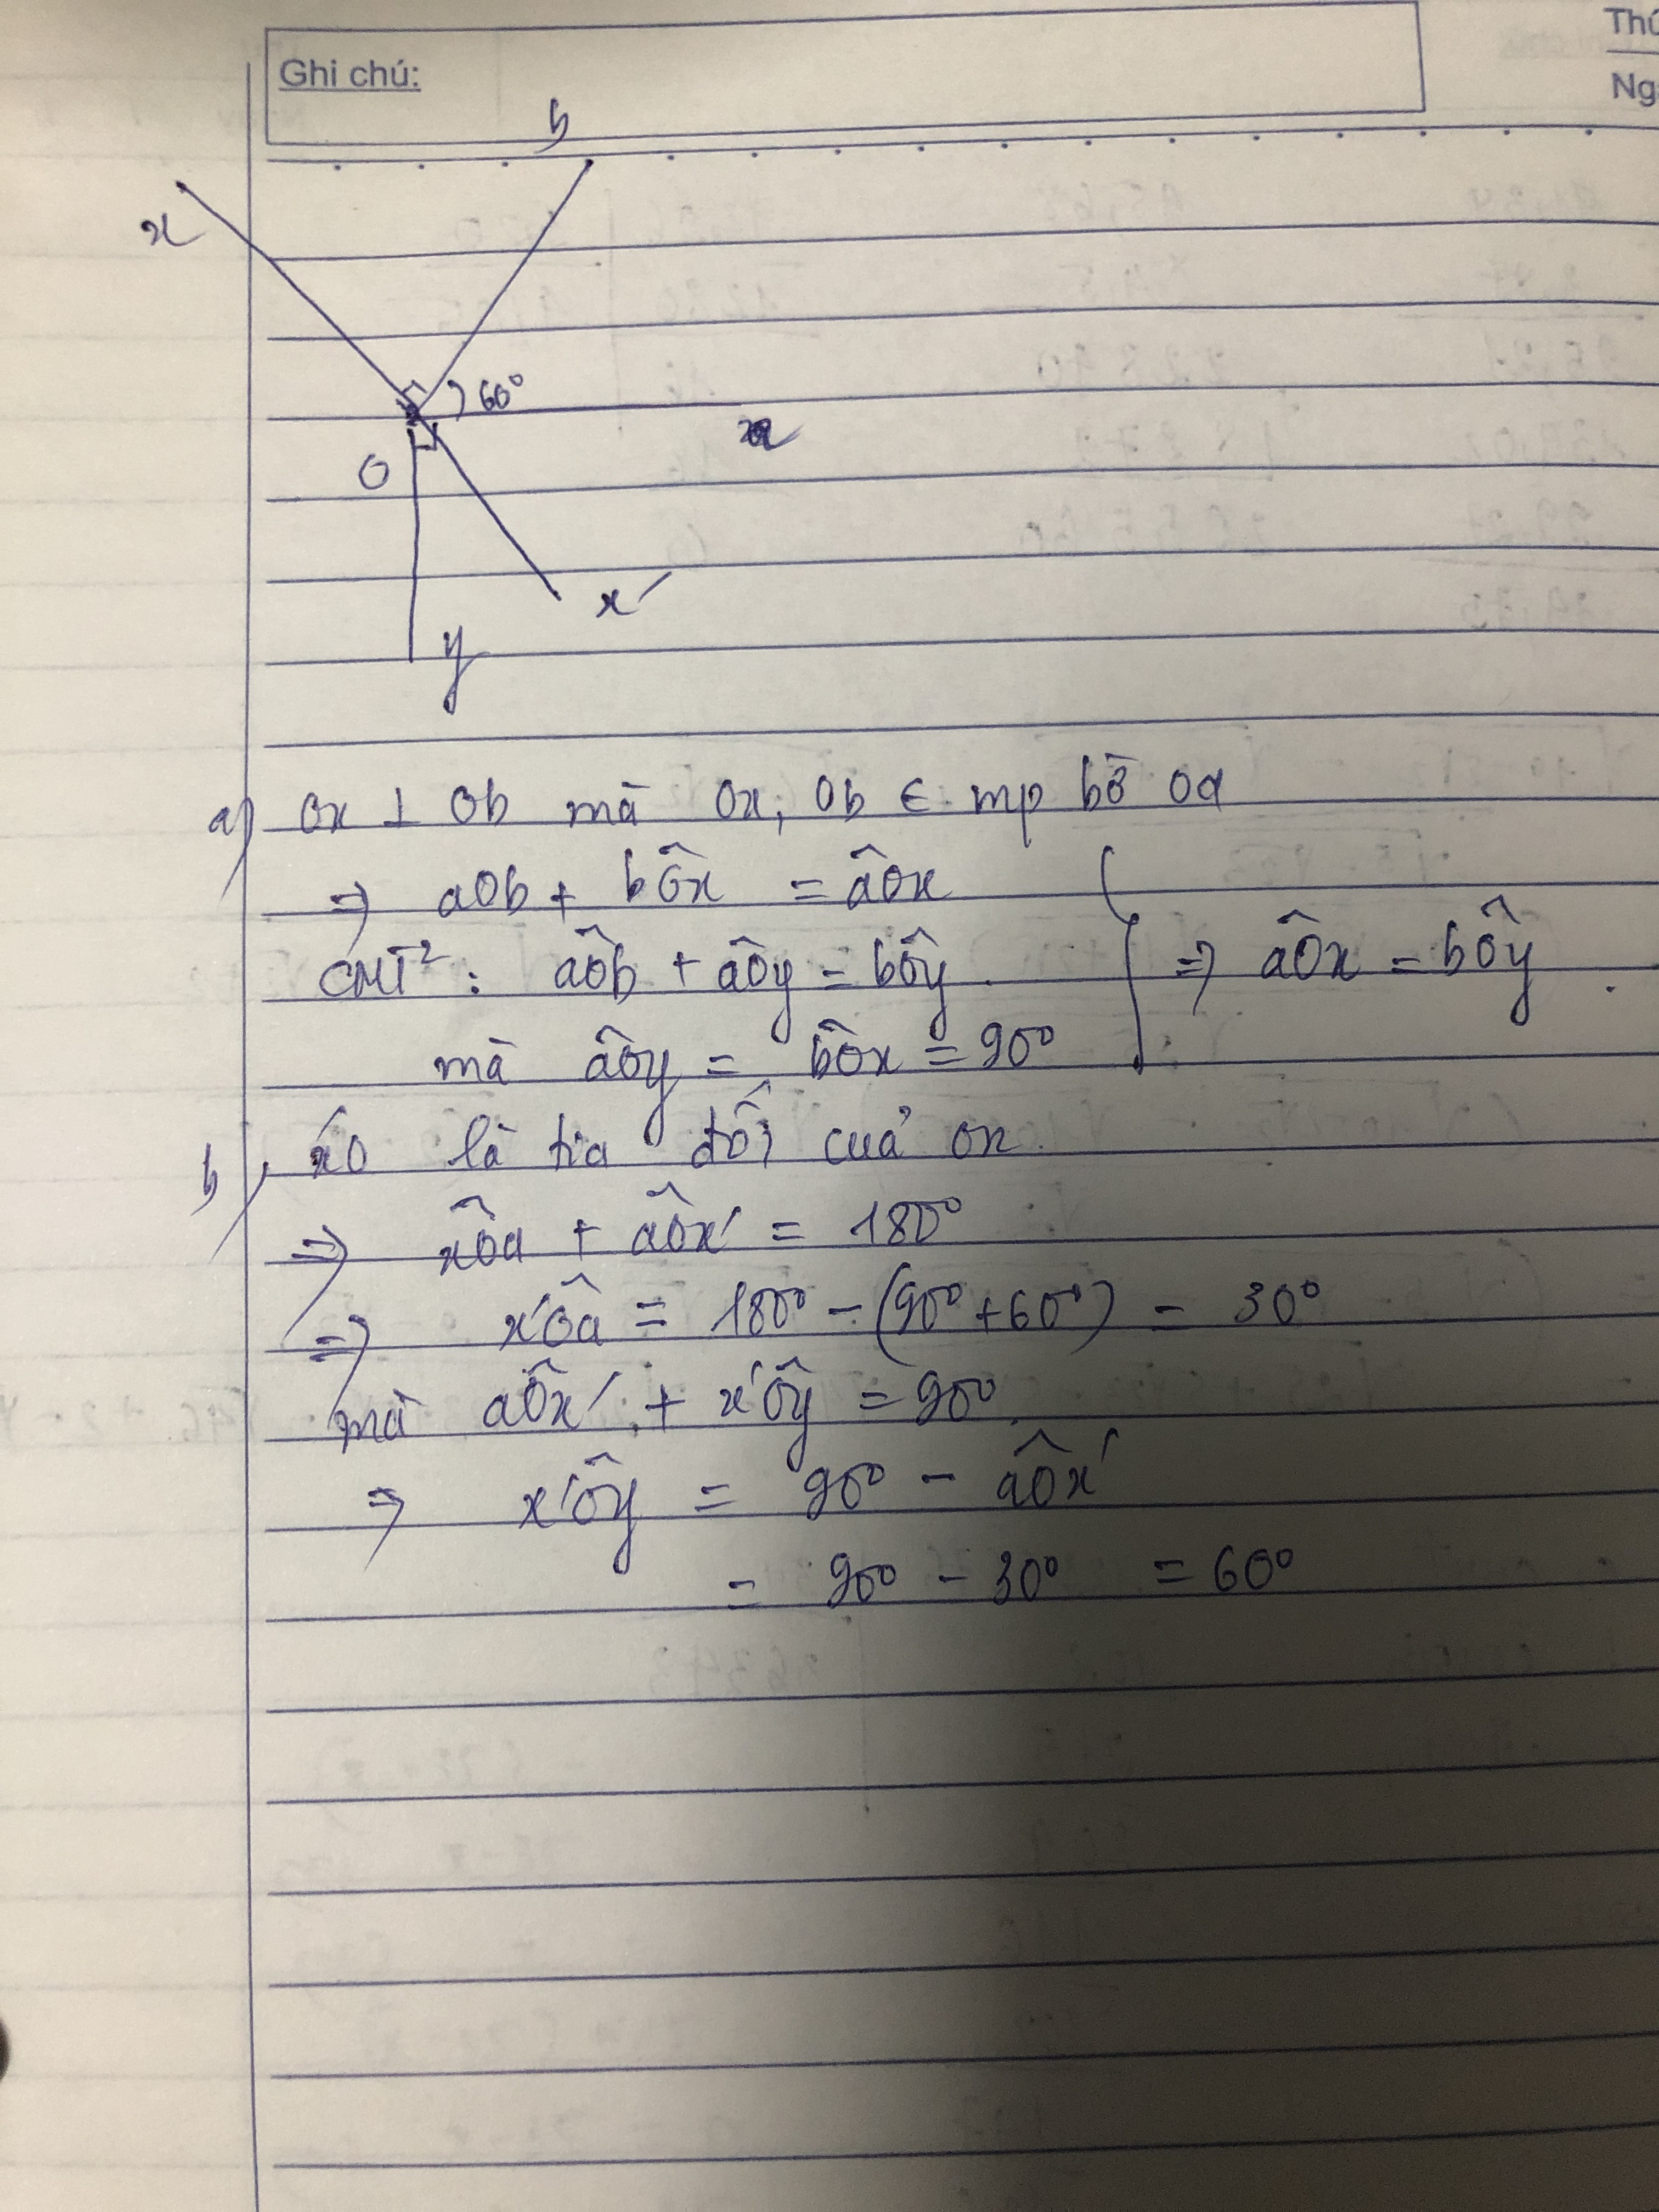 Ghi chú:
Thứ
Ng
b
x
60°
O
x'
y
a) Ox ⊥ Ob mà Ox, Ob ∈ mp bờ Oa
⇒ aOb + bÔx = âOx
CMT² : aÔb + âOy = bÔy ⇒ âOx = bÔy
mà âOy = bÔx = 90°
b, x'O là tia đối của Ox
⇒ xÔa + aÔx' = 180°
⇒ x'Ôa = 180° - (90° + 60°) = 30°
mà aÔx' + x'Ôy = 90°
⇒ x'Ôy = 90° - aÔx'
= 90° - 30° = 60°